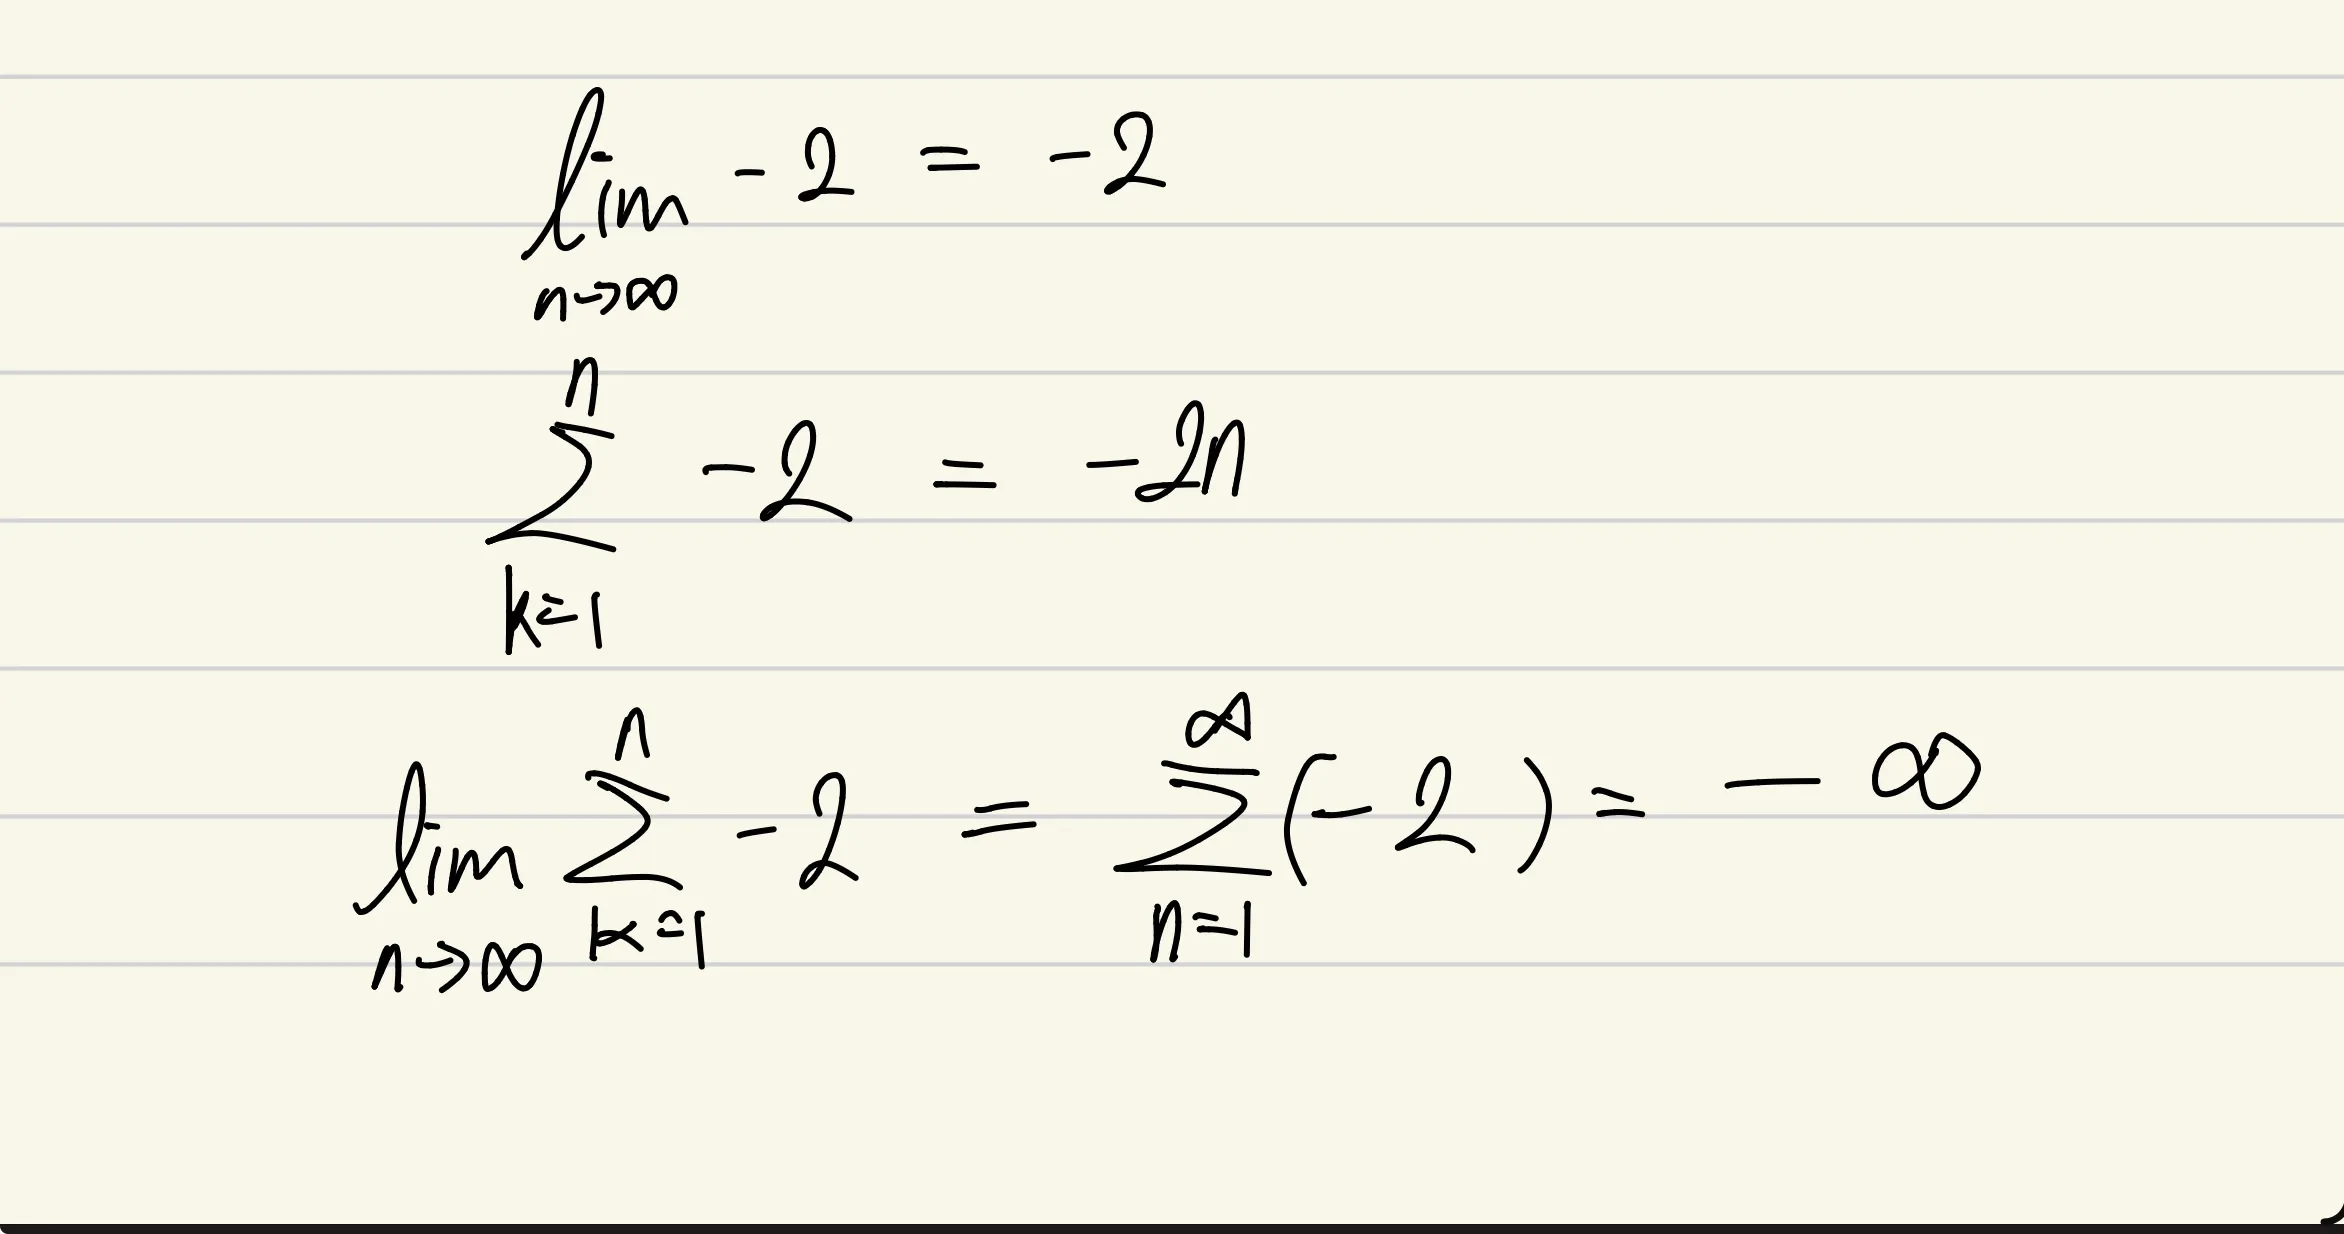 lim_{n→∞} -2 = -2
∑_{k=1}^{n} -2 = -2n
lim_{n→∞} ∑_{k=1}^{n} -2 = ∑_{n=1}^{∞} (-2) = -∞